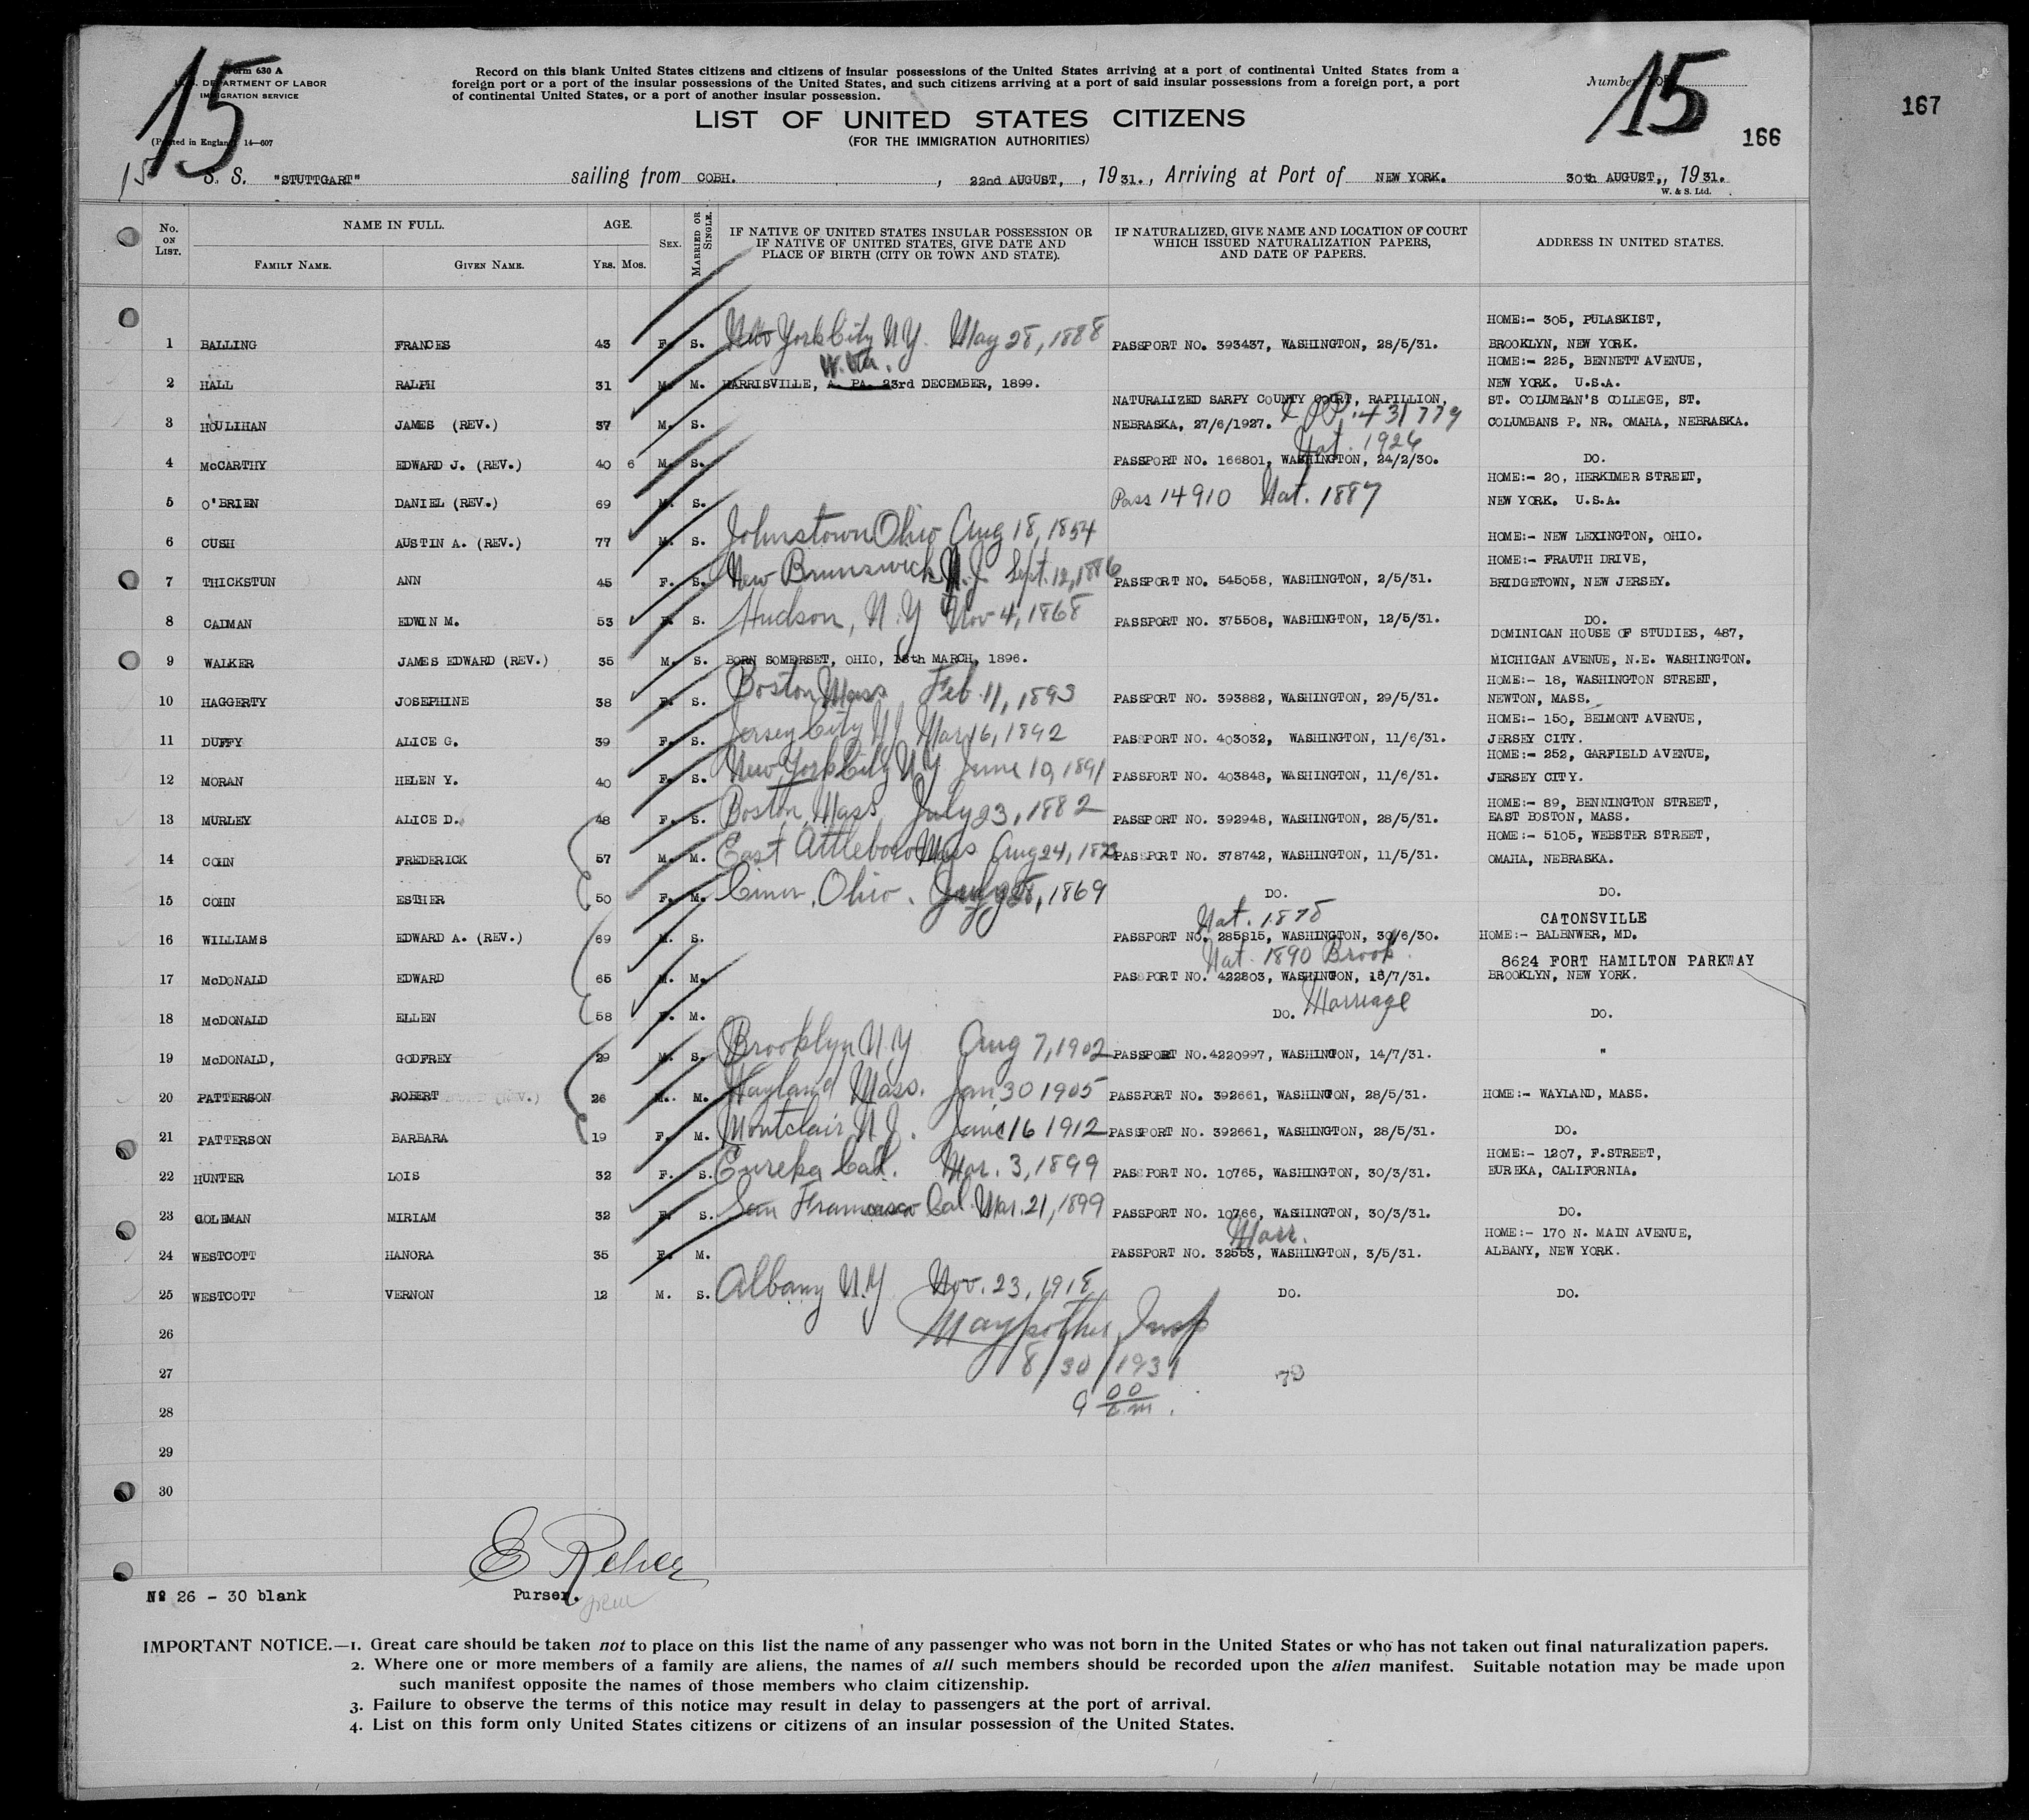 15
Form 630 A
U.S. DEPARTMENT OF LABOR
IMMIGRATION SERVICE
(Printed in England) 14—607
Record on this blank United States citizens and citizens of insular possessions of the United States arriving at a port of continental United States from a
foreign port or a port of the insular possessions of the United States, and such citizens arriving at a port of said insular possessions from a foreign port, a port
of continental United States, or a port of another insular possession.
Number
15
166
167
LIST OF UNITED STATES CITIZENS
(FOR THE IMMIGRATION AUTHORITIES)
15
S. S. "STUTTGART" sailing from COBH. , 22nd AUGUST, , 1931. , Arriving at Port of NEW YORK. 30th AUGUST,, 1931.
W. & S. Ltd.
No. ON LIST. NAME IN FULL. FAMILY NAME. GIVEN NAME. AGE. YRS. MOS. SEX. MARRIED OR SINGLE. IF NATIVE OF UNITED STATES INSULAR POSSESSION OR IF NATIVE OF UNITED STATES, GIVE DATE AND PLACE OF BIRTH (CITY OR TOWN AND STATE). IF NATURALIZED, GIVE NAME AND LOCATION OF COURT WHICH ISSUED NATURALIZATION PAPERS, AND DATE OF PAPERS. ADDRESS IN UNITED STATES.
HOME:- 305, PULASKIST,
1 BALLING FRANCES 43 F. S. New York City N.Y. May 28, 1888 PASSPORT NO. 393437, WASHINGTON, 28/5/31. BROOKLYN, NEW YORK.
W. Va. HOME:- 225, BENNETT AVENUE,
2 HALL RALPH 31 M. M. HARRISVILLE, A. PA. 23rd DECEMBER, 1899. NEW YORK. U.S.A.
NATURALIZED SARPY COUNTY COURT, RAPILLION, ST. COLUMBAN'S COLLEGE, ST.
3 HOULIHAN JAMES (REV.) 37 M. S. NEBRASKA, 27/6/1927. PP. 431779 COLUMBANS P. NR. OMAHA, NEBRASKA.
Nat. 1926
4 McCARTHY EDWARD J. (REV.) 40 6 M. S. PASSPORT NO. 166801, WASHINGTON, 24/2/30. DO.
HOME:- 20, HERKIMER STREET,
5 O'BRIEN DANIEL (REV.) 69 M. S. Pass 14910 Nat. 1887 NEW YORK. U.S.A.
6 CUSH AUSTIN A. (REV.) 77 M. S. Johnstown Ohio Aug 18, 1854 HOME:- NEW LEXINGTON, OHIO.
HOME:- FRAUTH DRIVE,
7 THICKSTUN ANN 45 F. S. New Brunswick N.J. Sept. 12, 1886 PASSPORT NO. 545058, WASHINGTON, 2/5/31. BRIDGETOWN, NEW JERSEY.
8 CADMAN EDWIN M. 53 F. S. Hudson, N.Y Nov 4, 1868 PASSPORT NO. 375508, WASHINGTON, 12/5/31. DO.
DOMINICAN HOUSE OF STUDIES, 487,
9 WALKER JAMES EDWARD (REV.) 35 M. S. BORN SOMERSET, OHIO, 18th MARCH, 1896. MICHIGAN AVENUE, N.E. WASHINGTON.
HOME:- 18, WASHINGTON STREET,
10 HAGGERTY JOSEPHINE 38 F. S. Boston Mass Feb. 11, 1893 PASSPORT NO. 393882, WASHINGTON, 29/5/31. NEWTON, MASS.
HOME:- 150, BELMONT AVENUE,
11 DUFFY ALICE G. 39 F. S. Jersey City NJ Mar 16, 1892 PASSPORT NO. 403032, WASHINGTON, 11/6/31. JERSEY CITY.
HOME:- 252, GARFIELD AVENUE,
12 MORAN HELEN Y. 40 F. S. New York City NY June 10, 1891 PASSPORT NO. 403848, WASHINGTON, 11/6/31. JERSEY CITY.
HOME:- 89, BENNINGTON STREET,
13 MURLEY ALICE D. 48 F. S. Boston, Mass July 23, 1882 PASSPORT NO. 392948, WASHINGTON, 28/5/31. EAST BOSTON, MASS.
HOME:- 5105, WEBSTER STREET,
14 COHN FREDERICK 57 M. M. East Attleboro Mass Aug 24, 1873 PASSPORT NO. 378742, WASHINGTON, 11/5/31. OMAHA, NEBRASKA.
15 COHN ESTHER 50 F. M. Cinn, Ohio. 1869 DO. DO.
Nat. 1878 CATONSVILLE
16 WILLIAMS EDWARD A. (REV.) 69 M. S. PASSPORT NO. 285815, WASHINGTON, 30/6/30. HOME:- BALENWER, MD.
Nat. 1890 Brook. 8624 FORT HAMILTON PARKWAY
17 McDONALD EDWARD 65 M. M. PASSPORT NO. 422803, WASHINGTON, 18/7/31. BROOKLYN, NEW YORK.
18 McDONALD ELLEN 58 F. M. DO. Marriage DO.
19 McDONALD, GODFREY 29 M. S. Brooklyn N.Y Aug 7, 1902 PASSPORT NO.4220997, WASHINGTON, 14/7/31. "
20 PATTERSON ROBERT 26 M. M. Wayland Mass. Jan 30 1905 PASSPORT NO. 392661, WASHINGTON, 28/5/31. HOME:- WAYLAND, MASS.
21 PATTERSON BARBARA 19 F. M. Montclair N.J. June 16 1912 PASSPORT NO. 392661, WASHINGTON, 28/5/31. DO.
HOME:- 1207, F.STREET,
22 HUNTER LOIS 32 F. S. Eureka Cal. Mar. 3, 1899 PASSPORT NO. 10765, WASHINGTON, 30/3/31. EUREKA, CALIFORNIA.
23 COLEMAN MIRIAM 32 F. S. San Francisco Cal. Mar. 21, 1899 PASSPORT NO. 10766, WASHINGTON, 30/3/31. DO.
Marr. HOME:- 170 N. MAIN AVENUE,
24 WESTCOTT HANORA 35 F. M. PASSPORT NO. 32553, WASHINGTON, 3/5/31. ALBANY, NEW YORK.
25 WESTCOTT VERNON 12 M. S. Albany N.Y Nov. 23, 1918 DO. DO.
26 Insp
27 8/30/1931
28 9 00 a.m.
29
30
Nº 26 - 30 blank
Purser.
IMPORTANT NOTICE.—1. Great care should be taken not to place on this list the name of any passenger who was not born in the United States or who has not taken out final naturalization papers.
2. Where one or more members of a family are aliens, the names of all such members should be recorded upon the alien manifest. Suitable notation may be made upon
such manifest opposite the names of those members who claim citizenship.
3. Failure to observe the terms of this notice may result in delay to passengers at the port of arrival.
4. List on this form only United States citizens or citizens of an insular possession of the United States.